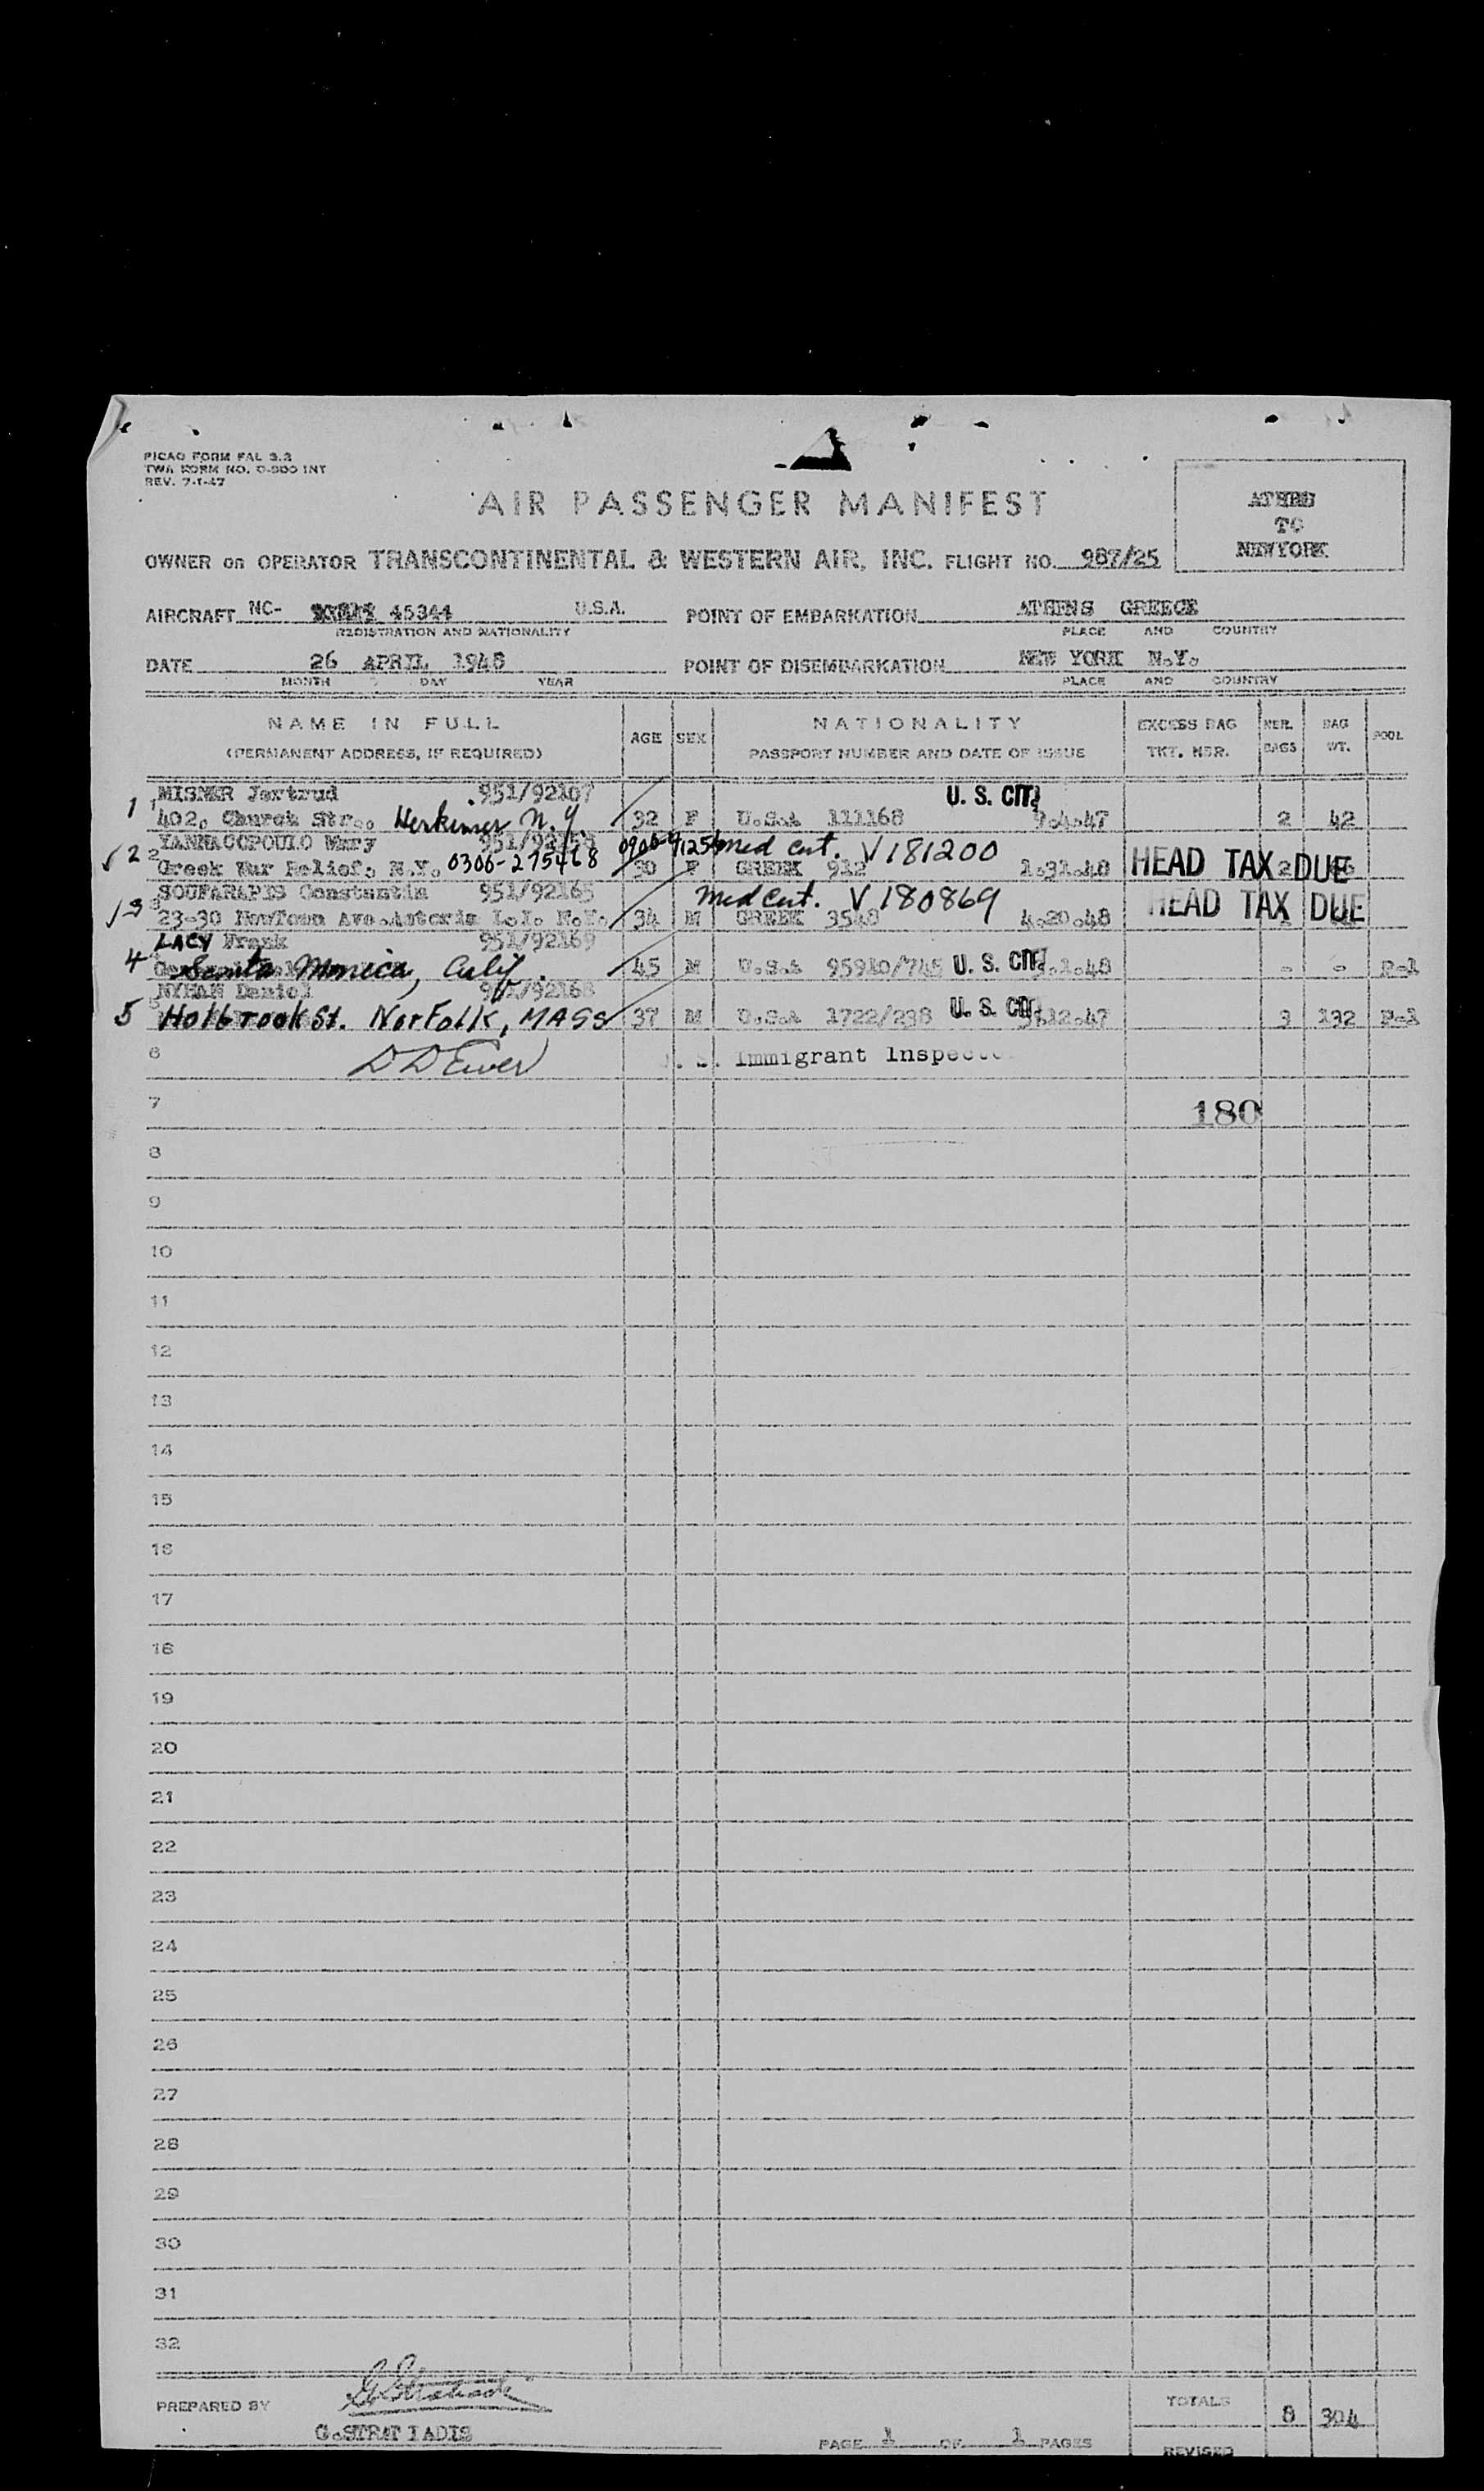 PICAO FORM FAL 3.3
TWA FORM NO. O-900 INT
REV. 7-1-47
AIR PASSENGER MANIFEST
ATHENS
TO
NEWYORK
OWNER OR OPERATOR TRANSCONTINENTAL & WESTERN AIR, INC. FLIGHT NO. 967/25
AIRCRAFT NC- 45344 U.S.A. POINT OF EMBARKATION ATHENS GREECE
REGISTRATION AND NATIONALITY PLACE AND COUNTRY
DATE 26 APRIL 1948 POINT OF DISEMBARKATION NEW YORK N.Y.
MONTH DAY YEAR PLACE AND COUNTRY
NAME IN FULL AGE SEX NATIONALITY EXCESS BAG NBR. BAG POOL
(PERMANENT ADDRESS, IF REQUIRED) PASSPORT NUMBER AND DATE OF ISSUE TKT. NBR. BAGS WT.
1 1 MISNER Jertrud 951/92107 U. S. CIT
402, Church Str., Herkimer N.Y. 32 F U.S.A 111168 9.4.47 2 42
√ 2 2 YANNACOPOULO Mary 951/92158 0900-41256 Med Cert. V181200
Greek War Relief, N.Y. 0306-275468 30 F GREEK 912 1.31.48 HEAD TAX DUE 2
√ 3 3 SOUFARAPIS Constantin 951/92165 Med Cert. V 180869
23-30 NewTown Ave.Astoria L.I. N.Y. 34 M GREEK 3548 4.20.48 HEAD TAX DUE
4 LACY Frank 951/92169
Santa Monica, Calif. 45 M U.S.A 95910/745 U. S. CIT .1.48 - - P-1
5 NYHAN Daniel 951/92168
Holbrook St. Norfolk, MASS 37 M U.S.A 1722/238 U. S. CIT .12.47 3 132 P-1
6 D D Ewer U. S. Immigrant Inspector
7 180
8
9
10
11
12
13
14
15
16
17
18
19
20
21
22
23
24
25
26
27
28
29
30
31
32
PREPARED BY G. Stratiadis TOTALS 8 304
G.STRATIADIS
PAGE 1 OF 1 PAGES REVISED